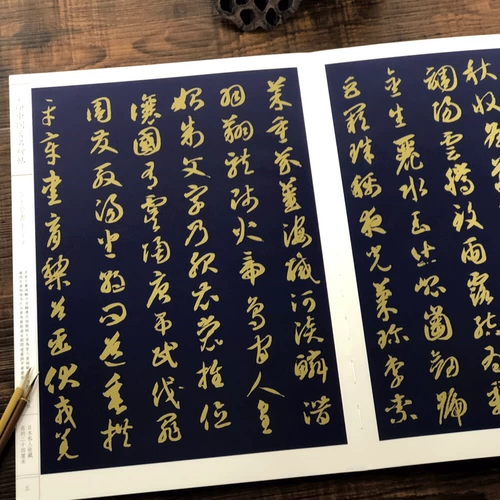 秋收
調陽雲騰致雨露結為
金生麗水玉出崑岡劍號
巨闕珠稱夜光果珍李柰
菜重芥薑海鹹河淡鱗潛
羽翔龍師火帝鳥官人皇
始制文字乃服衣裳推位
讓國有虞陶唐弔民伐罪
周發殷湯坐朝問道垂拱
平章愛育黎首臣伏戎羌
日本私人收藏